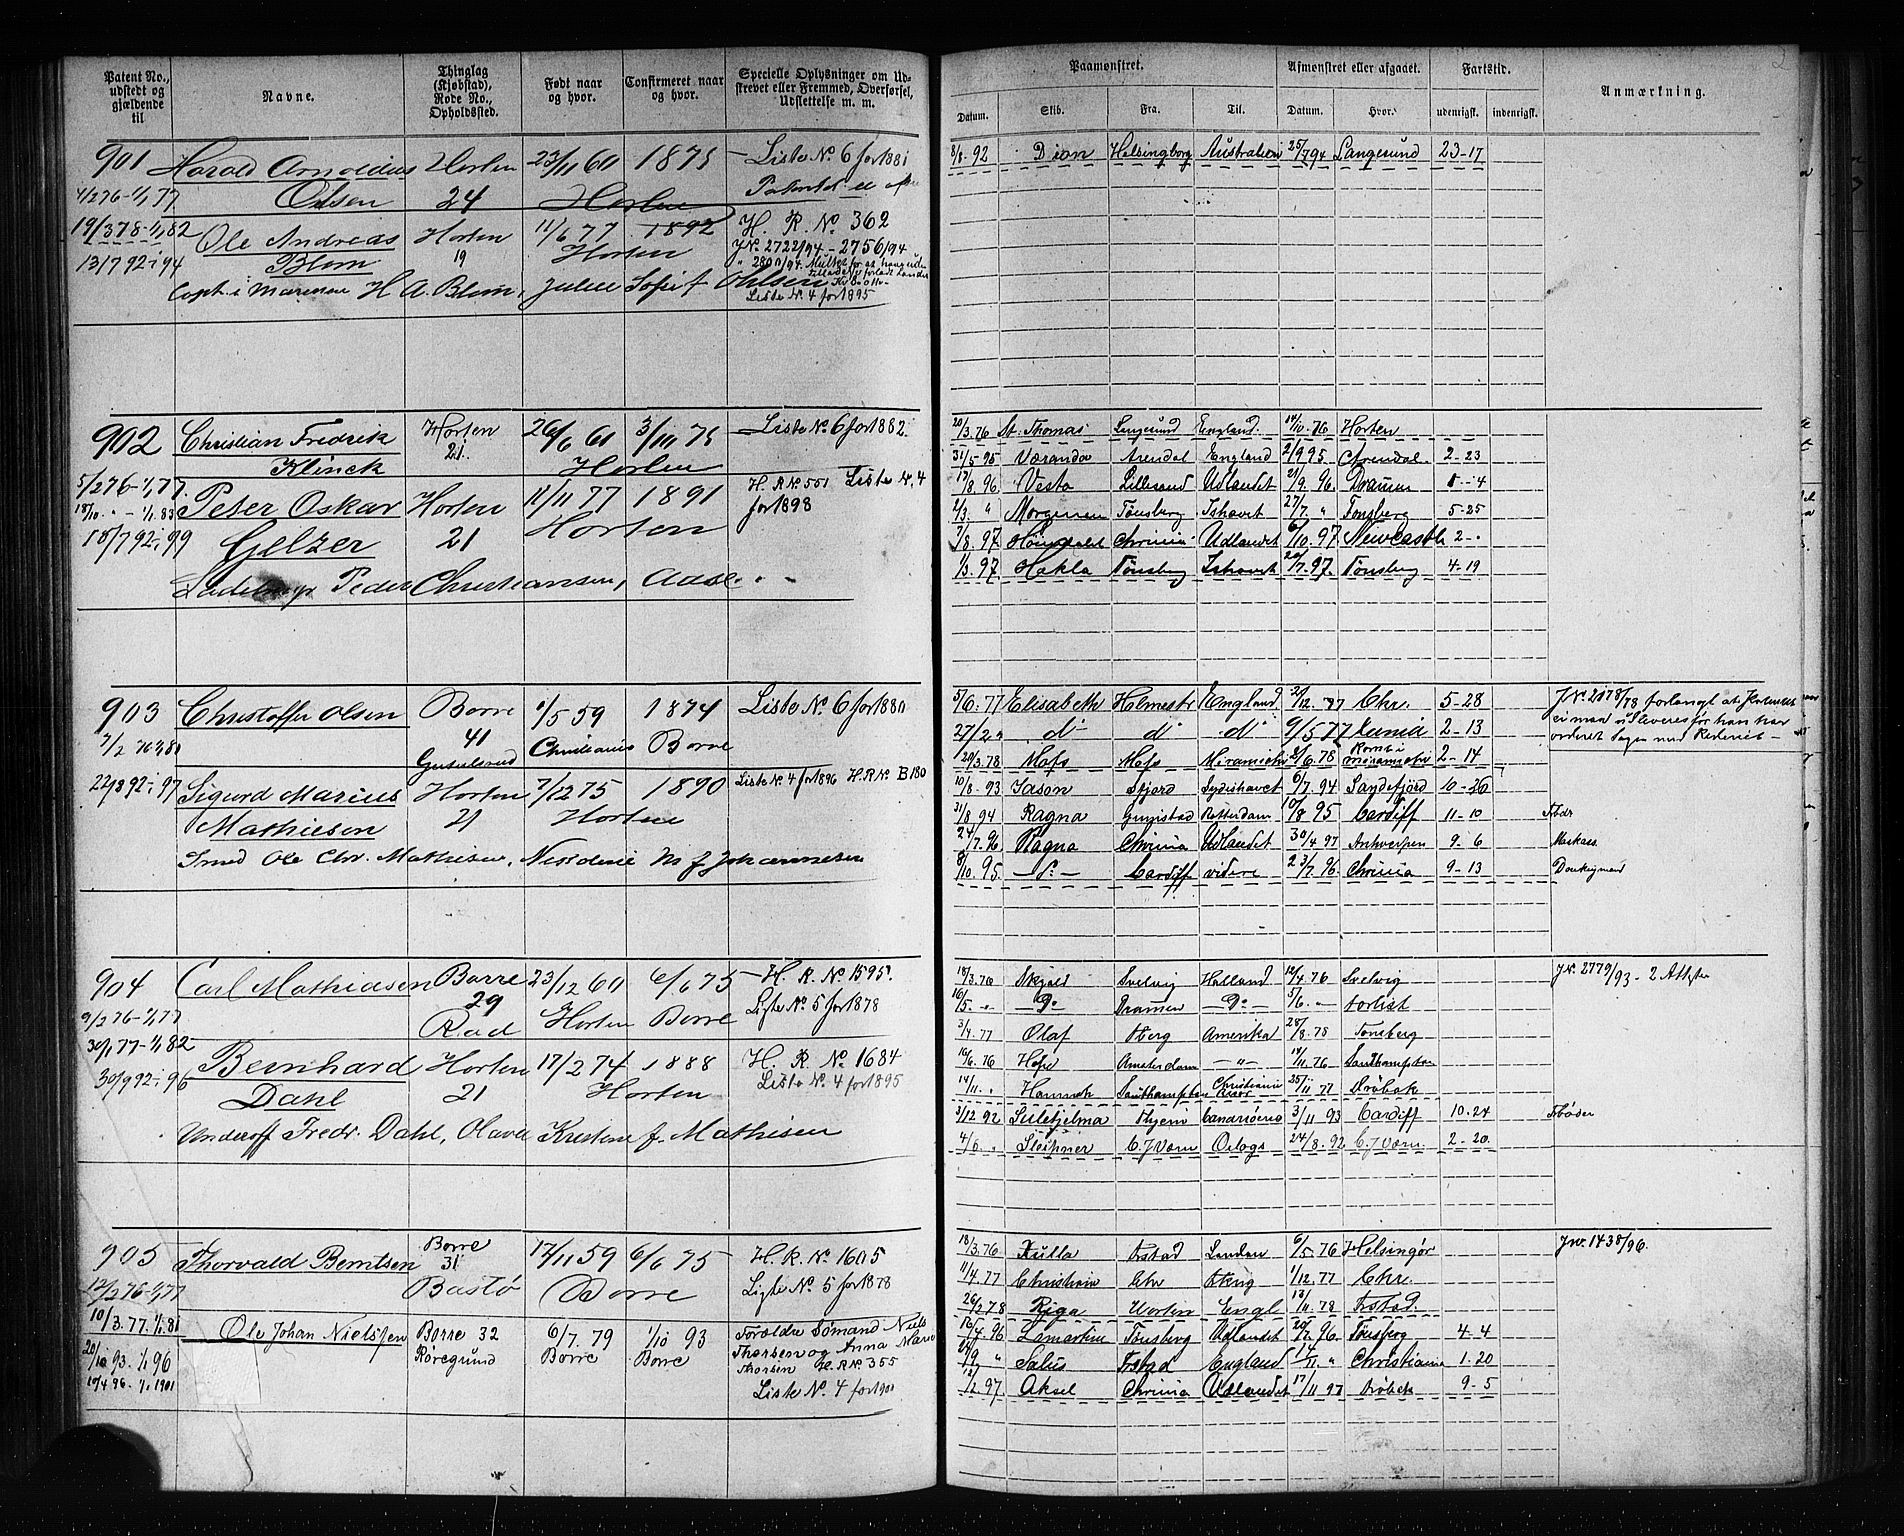 Patent No., udstedt og gjældende til
Navne.
Thinglag (Kjøbstad), Rode No., Opholdssted.
Født naar og hvor.
Confirmeret naar og hvor.
Specielle Oplysninger om Udskrevet eller Fremmed, Overførsel, Udslettelse m. m.
901 Harald Arnoldius Horten 23/11 60 1875 Liste No. 6 for 1881
4/2 76-1/1 77 Olsen 24 Horten
19/3 78-1/1 82 Ole Andreas Horten 11/6 77 1892 H. R. No. 362
13/7 92-i 94 Blom 19 Horten J.No. 2722/94-2756/94
H. A. Blom, Julie Sofie f. Ohlsen
Liste No. 4 for 1895
902 Christian Fredrik Horten 26/6 61 3/10 75 Liste No. 6 for 1882.
Klinck 21. Horten
5/2 76-1/1 77. Peter Oskar Horten 11/11 77 1891 H. R. No. 551 Liste No. 4 for 1898
18/7 92-i 99 Gelzer 21 Horten
Peder Christiansen, Aase
903 Christoffer Olsen Borre 1/5 59 1874 Liste No. 6 for 1880
41 Christiania Borre
22/8 92-i 97 Sigurd Marius Horten 7/12 75 1890 Liste No. 4 for 1896 H. R. No. B 180
Mathiesen 21 Horten
Smed Ole Chr. Mathisen, f Johannesen
904 Carl Mathiasen Borre 23/12 60 6/6 75 H. R. No. 1595.
9/2 76-1/1 77 29 Horten Borre Liste No. 5 for 1878
30/1 77-1/1 82 Bernhard Horten 17/2 74 1888 H. R. No. 1684
30/9 92-i 96 Dahl 21 Horten Liste No. 4 for 1895
Underoff Fredr. Dahl, Olava Kristine f. Mathisen
905 Thorvald Berntsen Borre 31 17/11 59 6/6 75 H. R. No. 1605
12/2 76-1/1 77 Bastø Borre Liste No. 5 for 1878
10/3. 77. 1/1 81 Ole Johan Nielsen Borre 32 6/7. 79 1/10 93 Forældre Sømand Niels
20/10 93. 1/1 96 Røregrund Borre Borre Thorsen og Anna
10/4 96. 1/1 1901 H. R. No. 355
Liste No. 4 for 1901
Paamønstret.
Afmønstret eller afgaaet.
Fartstid.
Anmærkning.
Datum. Skib. Fra. Til. Datum. Hvor. udenrigst. indenrigst.
8/8. 92 Dion Helsingborg Australien 25/7 94 Langesund 23-17
20/3. 76 St. Thomas Langesund England. 14/10. 76 Horten
31/5 95 Væranda Arendal England 2/9 95 Arendal. 2-23
17/8. 96. Vesta Lillesand Udlandet 21/9. 96. Drammen
2/3. " Morgenen Tønsberg Ishavet 27/7. " Tønsberg 5-25
7/8. 97 Chrinia Udlandet 6/10. 97 Newcastle 2-.
1/3. 97. Hekla Tønsberg Ishavet 20/7. 97. Tønsberg 4-19
5/6. 77 Elisabeth Holmestr England 21/12. 77 Chr. 5-28
27/2 " do do do 9/5 77 2-13
20/3. 78 Miramichi 2-14
10/8. 93 Jason Sydishavet 6/7. 94 Sandefjord 10-26
31/8 94 Ragna Grimstad Rotterdam 10/8 95 Cardiff 11-10 Fbdr
24/7. 96 Ragna Chrinia Udlandet 30/4 97 Antwerpen 9-6
8/10. 95. do Cardiff videre 23/7. 96. Chrinia 9-13 Donkeymand
18/3. 76 Skjold Svelvig Holland 12/4 76 Svelvig J.No. 2779/93 - 2 Attester
16/5. Do Dramen Do 5/6. forlist
3/4. 77 Olaf Tberg Amerika 28/8. 78 Tønsberg
16/6. 76 Amsterdam 14/11. 76 Southampton
14/11. Hannah Southampton Christiania 25/11. 77 Drøbak
3/12 92 Sulitjelma Canariøerne 3/11 93 Cardiff 10-24 Fbøder
4/6. Sleipner C. J. Værn Orlogs 24/8. 92 C. J. Værn. 2-20.
18/3. 76 Fstad London 6/5. 76 Helsingør J.No. 1438/96.
11/4. 77 Christiania Chr 1/12. 77 Chr.
26/2 78 Riga Engl 13/11. 78 Fstad.
16/4. 96 Lamartine Tønsberg Udlandet 20/7. 96. Tønsberg 4-4
Salus Fstad England 14/11. " Christiania 1-20
12/2 97 Aksel Chrinia Udlandet 17/11 97 Drøbak 9-5